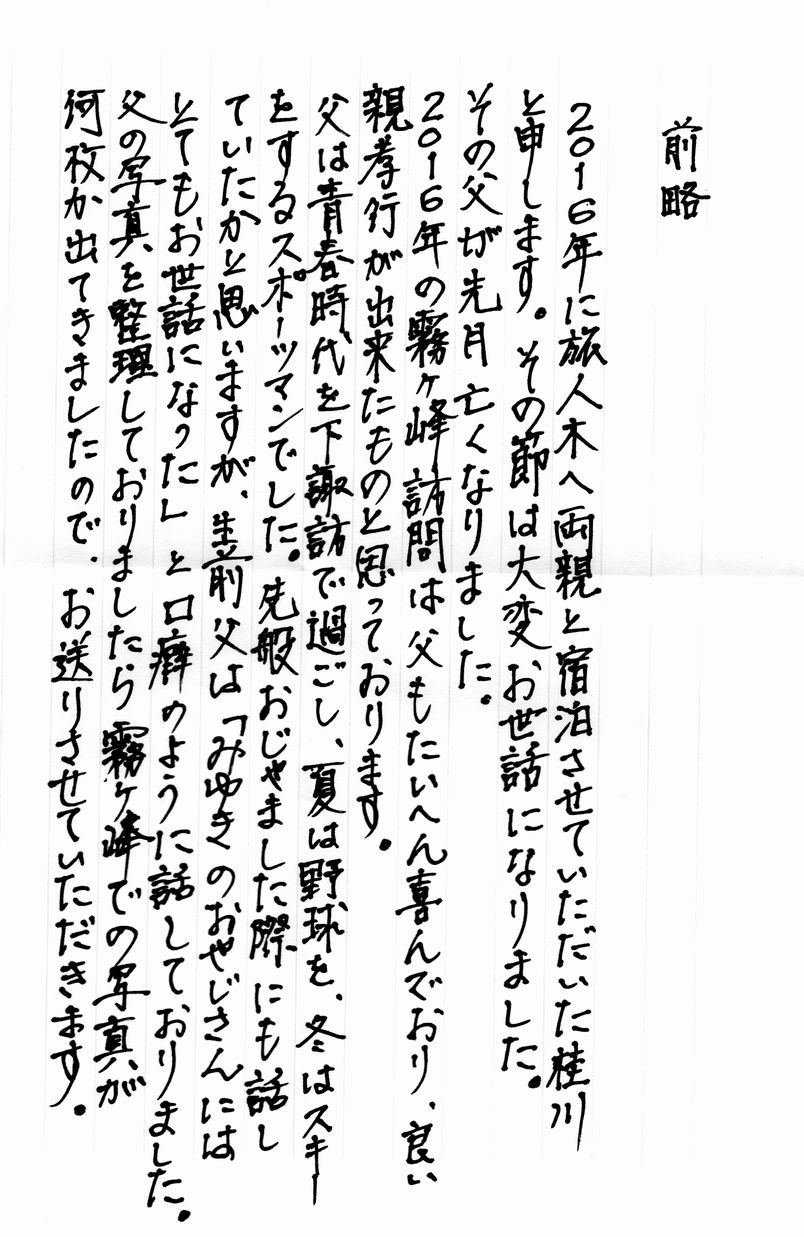 前略
2016年に旅人木へ両親と宿泊させていただいた桂川
と申します。その節は大変お世話になりました。
その父が先月亡くなりました。
2016年の霧ヶ峰訪問は父もたいへん喜んでおり、良い
親孝行が出来たものと思っております。
父は青春時代を下諏訪で過ごし、夏は野球を、冬はスキー
をするスポーツマンでした。先般おじゃました際にも話し
ていたかと思いますが、生前父は「みゆきのおやじさんには
とてもお世話になった」と口癖のように話しておりました。
父の写真を整理しておりましたら霧ヶ峰での写真が
何枚か出てきましたので、お送りさせていただきます。